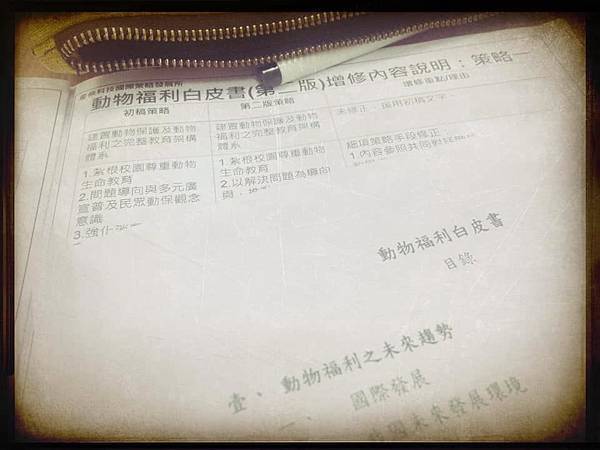 農業科技國際策略發展所
動物福利白皮書(第二版)增修內容說明：策略一
初稿策略
第二版策略
增修重點/理由
建置動物保護及動物
福利之完整教育架構
體系
建置動物保護及動物
福利之完整教育架構
體系
未修正、援用初稿文字
1.紮根校園尊重動物
生命教育
2.問題導向與多元廣
宣普及民眾動保觀念
意識
3.強化
1.紮根校園尊重動物
生命教育
2.以解決問題為導向
與
細項策略手段修正
1.內容參照共同對話
動物福利白皮書
目錄
壹、動物福利之未來趨勢
一、國際發展
我國未來發展環境